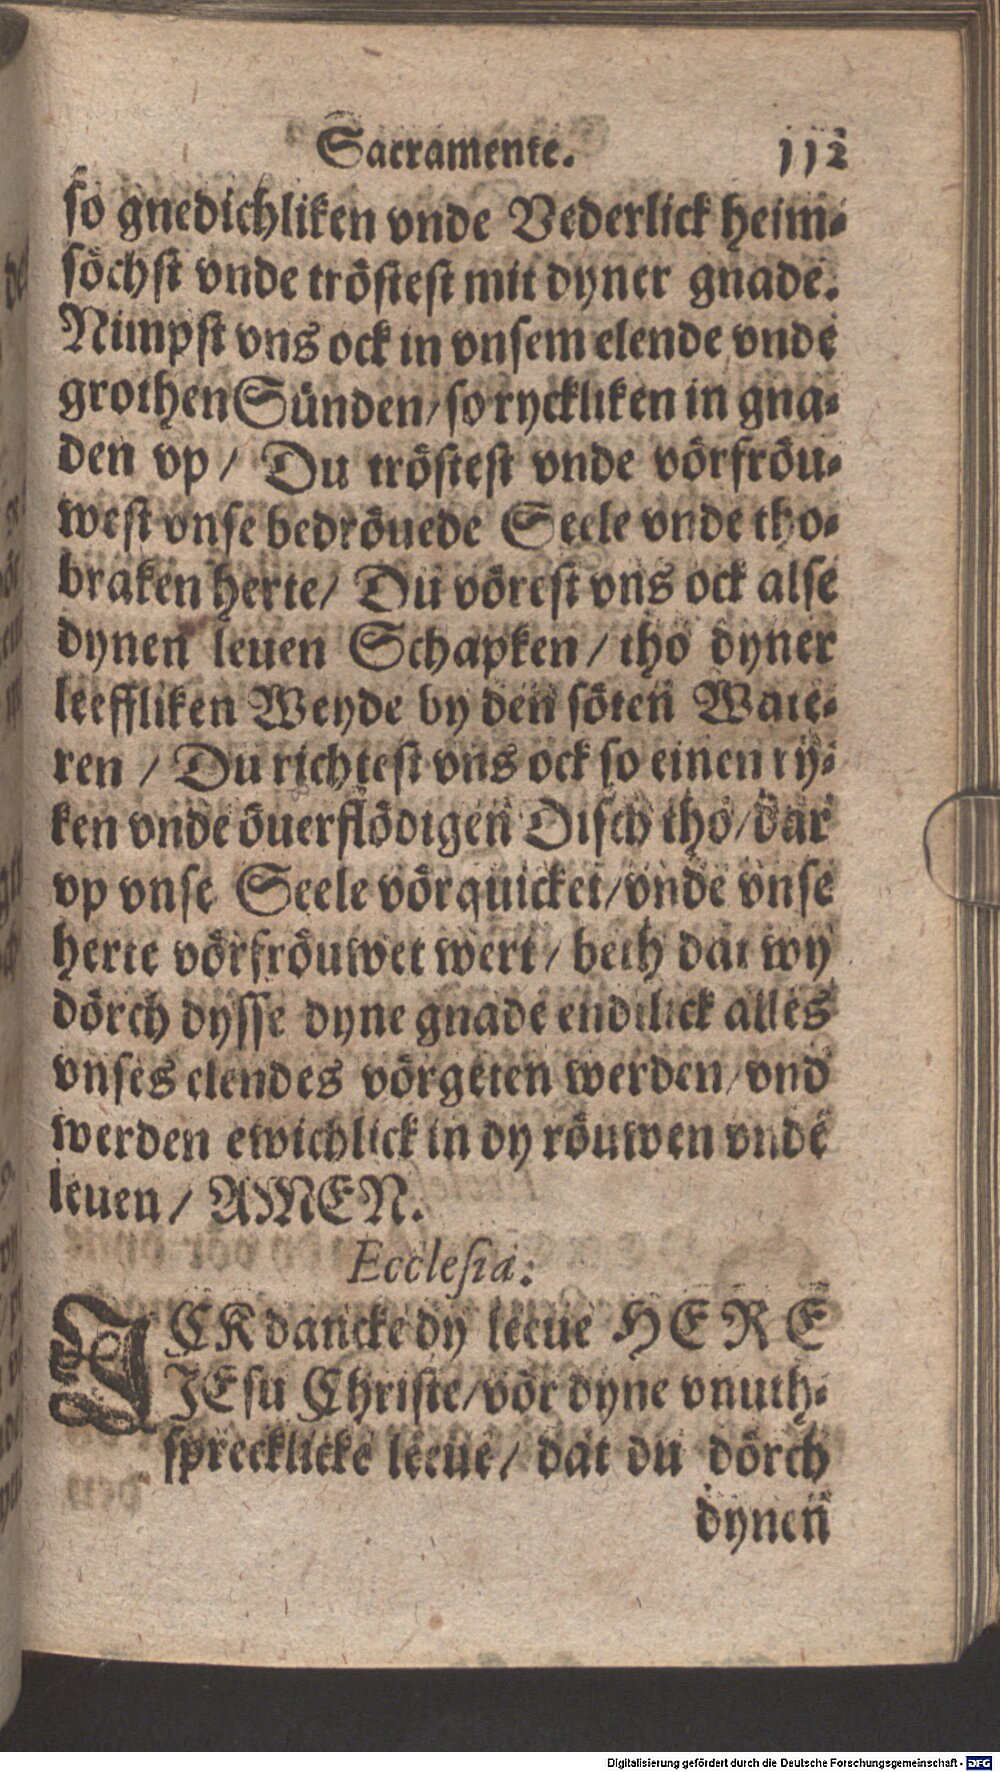 Sacramente. 112
so gnedichliken vnde Vederlick heim-
söchst vnde tröstest mit dyner gnade.
Nimpst vns ock in vnsem elende vnde
grothen Sünden/ so ryckliken in gna-
den vp/ Du tröstest vnde vörfröu-
west vnse bedröuede Seele vnde tho-
braken herte/ Du vörest vns ock alse
dynen leuen Schapken/ tho dyner
leeffliken Weyde by den söten Wate-
ren/ Du richtest vns ock so einen ry-
ken vnde öuerflödigen Disch tho/ dar
vp vnse Seele vörquicket/ vnde vnse
herte vörfröuwet wert/ beth dat wy
dörch dysse dyne gnade endtlick alles
vnses elendes vörgeten werden/ vnd
werden ewichlick in dy röuwen vnde
leuen/ AMEN.
Ecclesia:
ICK dancke dy leeue HERE
JEsu Christe/ vör dyne vnuth-
sprecklicke leeue/ dat du dörch
dynen
Digitalisierung gefördert durch die Deutsche Forschungsgemeinschaft - DFG